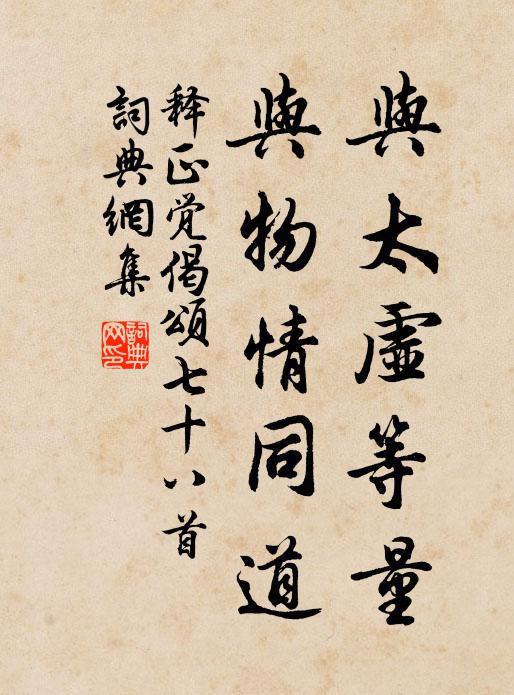 與太虛等量
與物情同道
释正觉偈頌七十八首
詞典網集
詞典網印